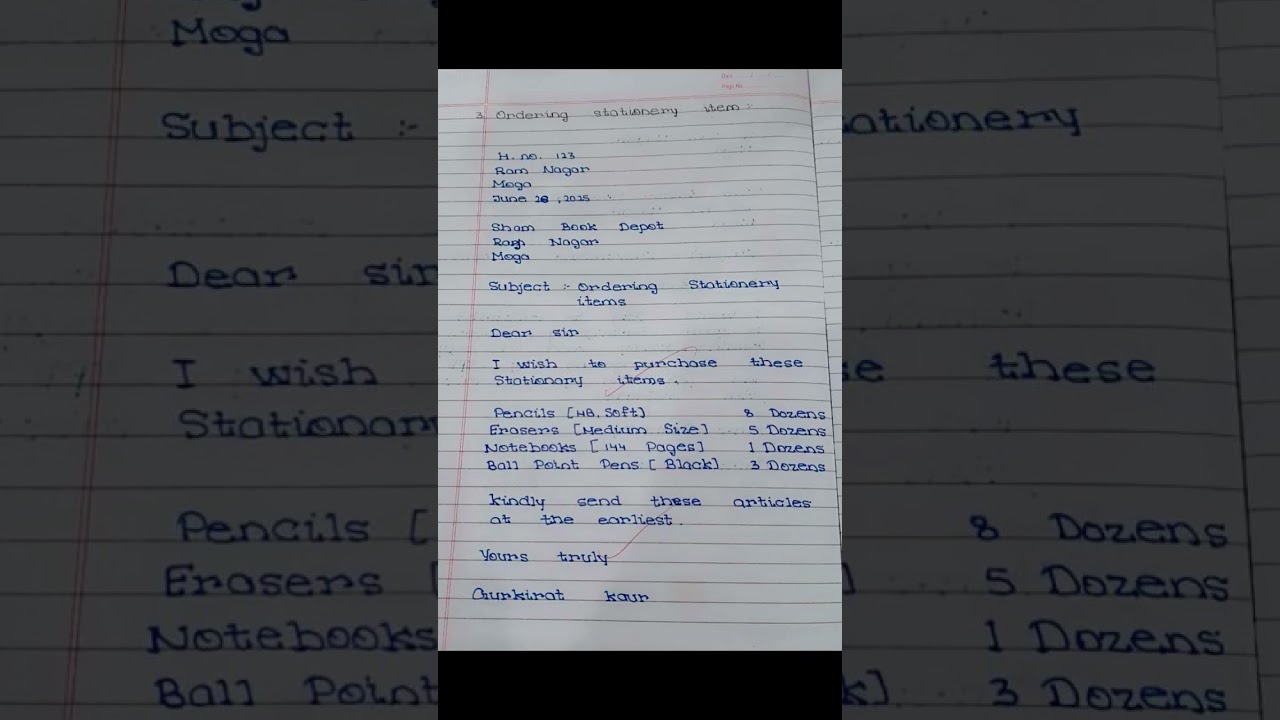 Date
Page No.
3. Ordering stationery item :-
H. no. 123
Ram Nagar
Moga
June 28, 2025
Sham Book Depot
Ram Nagar
Moga
Subject :- Ordering Stationery
items
Dear sir
I wish to purchase these
Stationary items.
Pencils [HB, Soft] 8 Dozens
Erasers [Medium Size] 5 Dozens
Notebooks [144 Pages] 1 Dozens
Ball Point Pens [Black] 3 Dozens
Kindly send these articles
at the earliest.
Yours truly
Gurkirat kaur